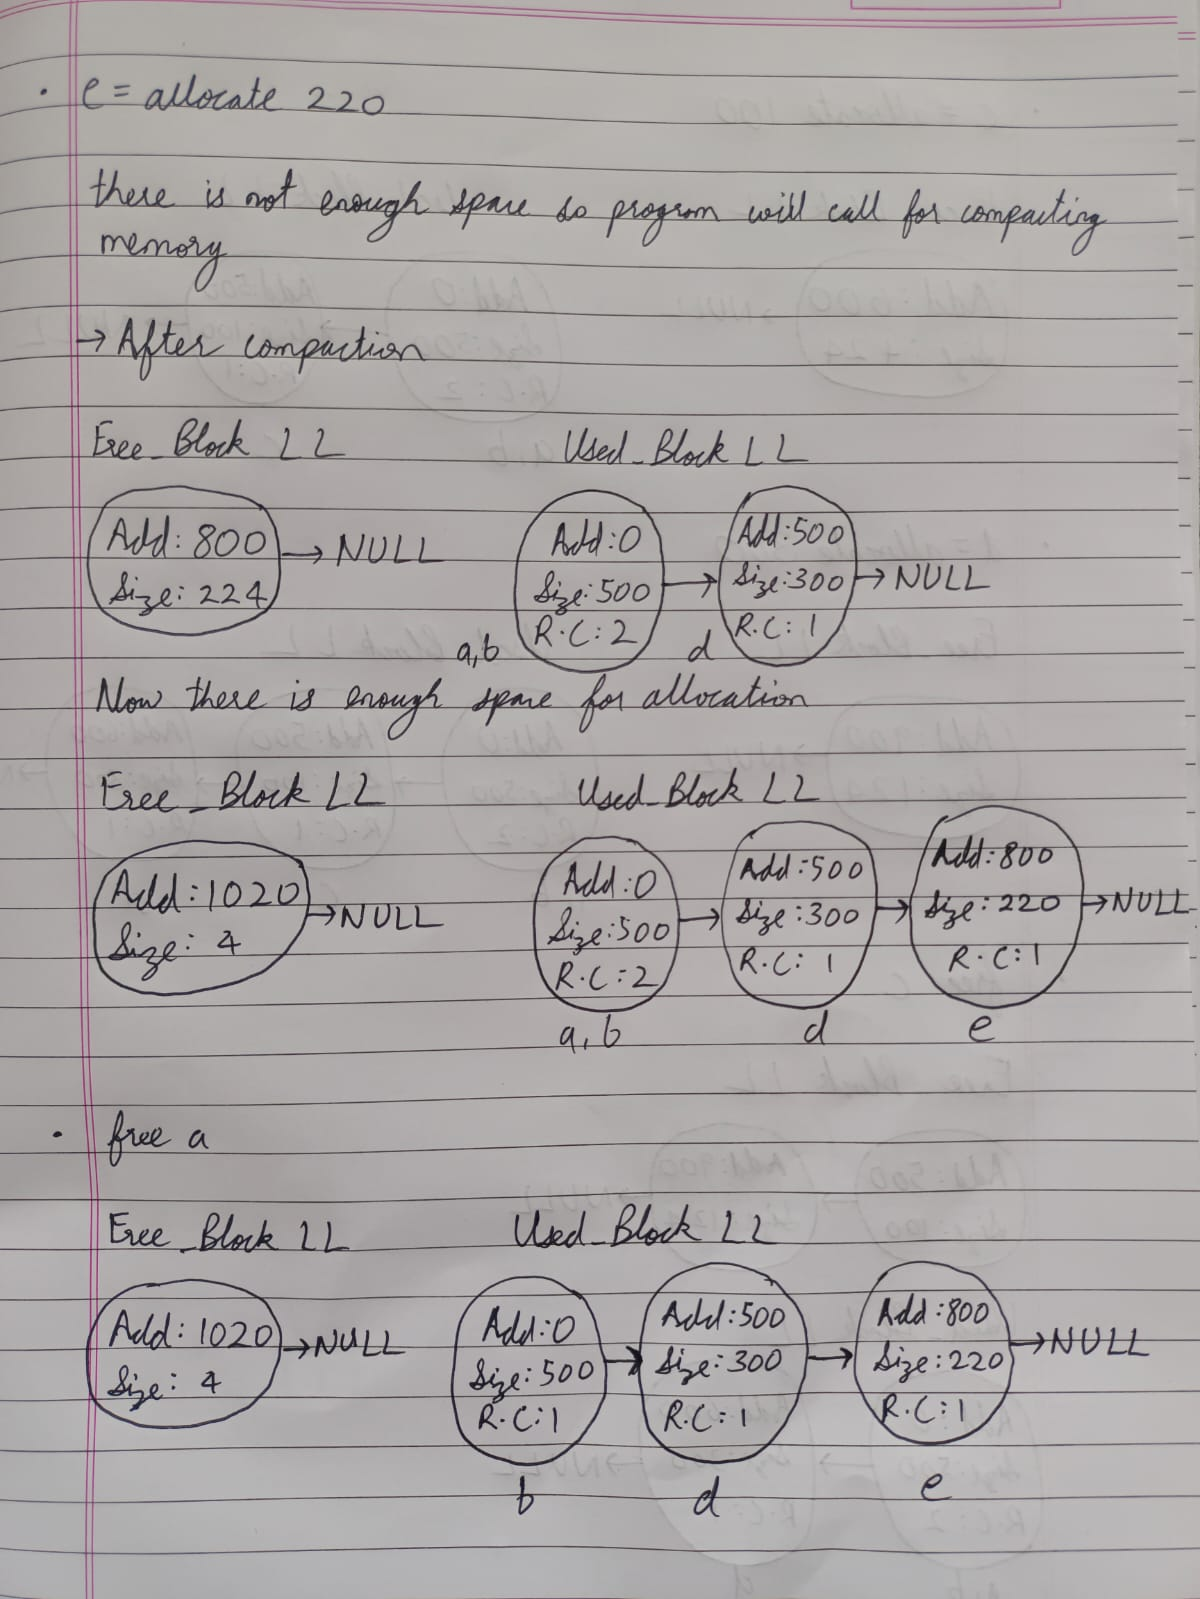 · e = allocate 220
there is not enough space so program will call for compacting
memory
→ After compaction
Free_Block LL Used_Block LL
Add: 800 Size: 224 → NULL
Add: 0 Size: 500 R.C: 2 → Add: 500 Size: 300 R.C: 1 → NULL
a, b d
Now there is enough space for allocation
Free_Block LL Used_Block LL
Add: 1020 Size: 4 → NULL
Add: 0 Size: 500 R.C: 2 → Add: 500 Size: 300 R.C: 1 → Add: 800 Size: 220 R.C: 1 → NULL
a, b d e
· free a
Free_Block LL Used_Block LL
Add: 1020 Size: 4 → NULL
Add: 0 Size: 500 R.C: 1 → Add: 500 Size: 300 R.C: 1 → Add: 800 Size: 220 R.C: 1 → NULL
b d e